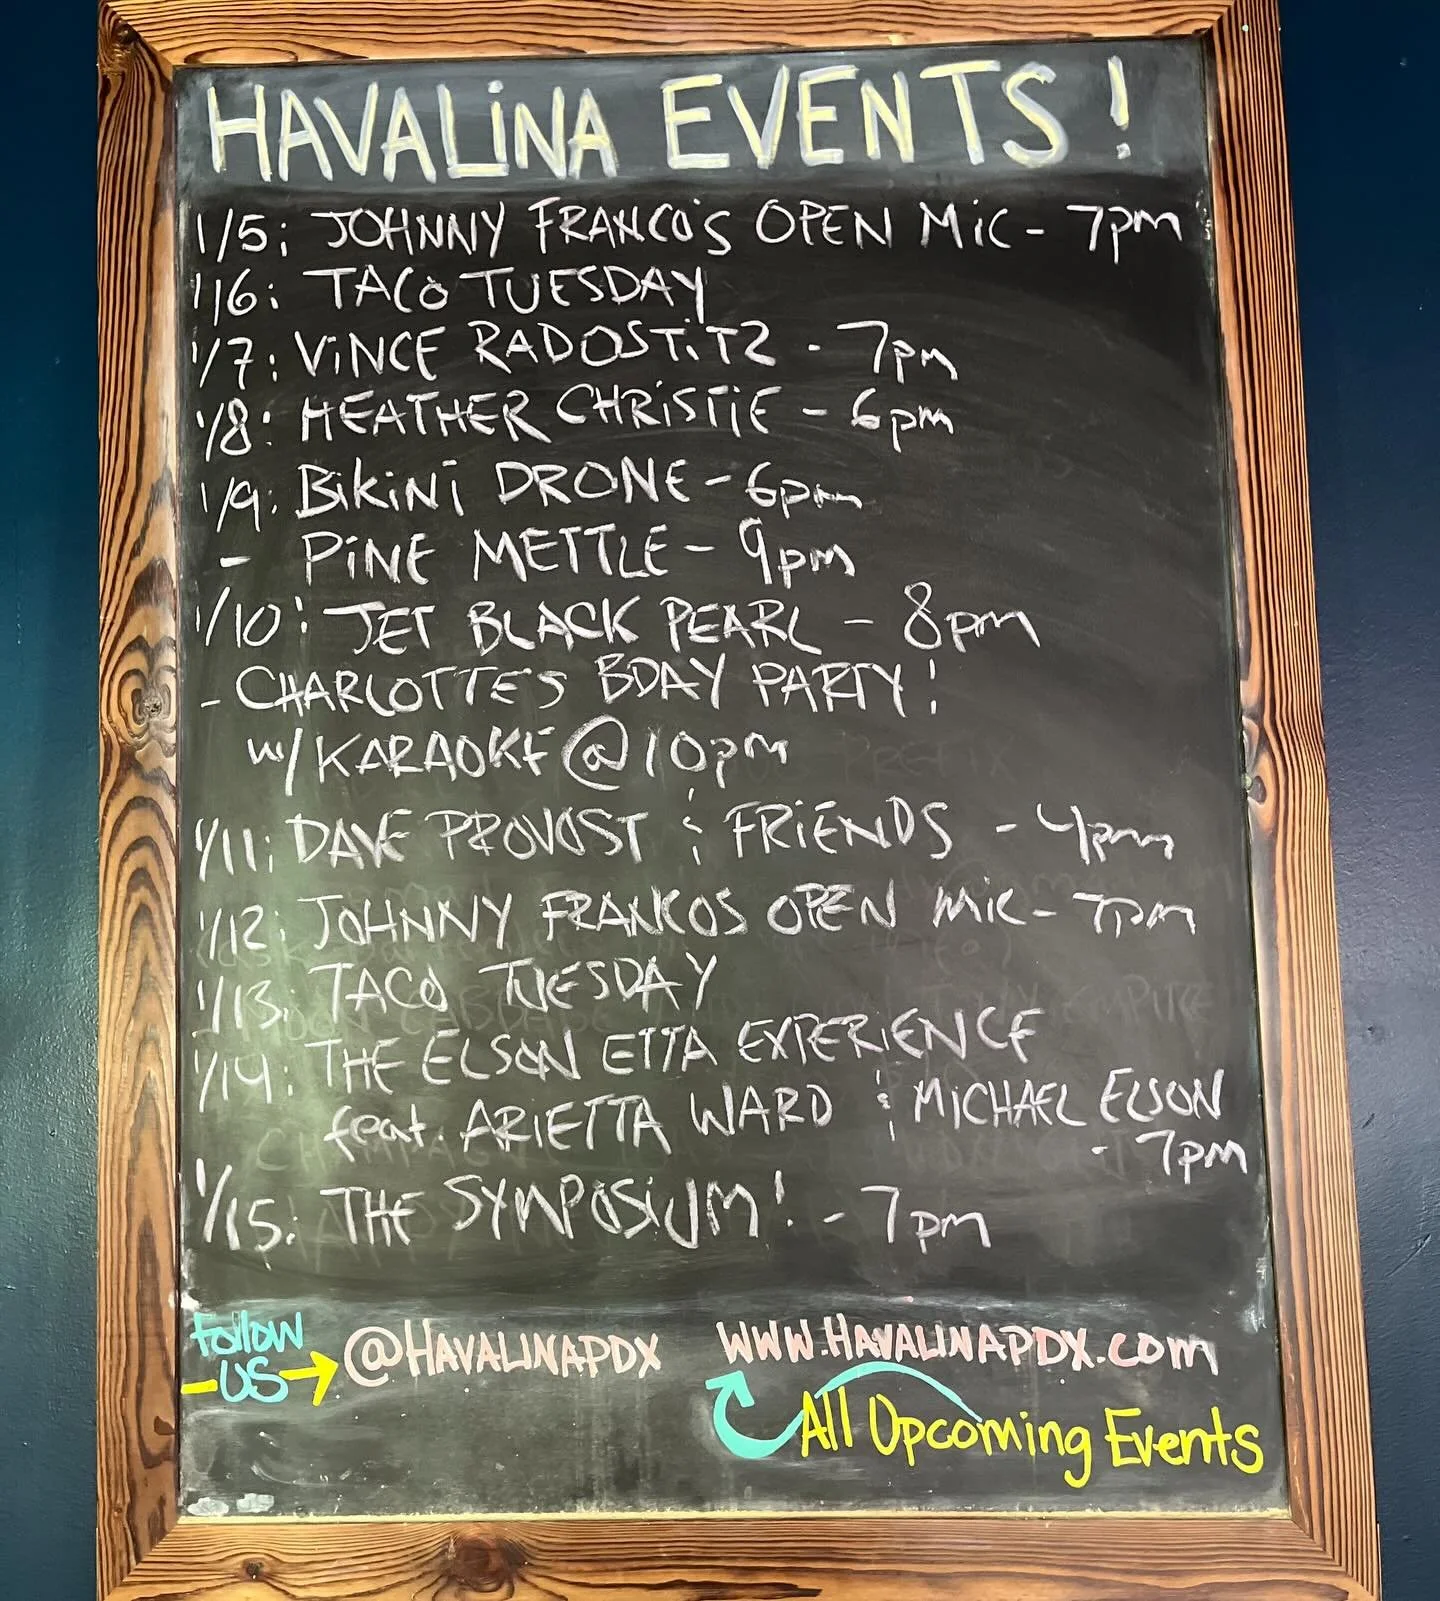 HAVALiNA EVENTS!
1/5: JOHNNY FRANCO'S OPEN MiC - 7pm
1/6: TACO TUESDAY
1/7: ViNCE RADOSTiTZ - 7pm
1/8: HEATHER CHRiSTiE - 6pm
1/9: BiKiNi DRONE - 6pm
- PiNE METTLE - 9pm
1/10: JET BLACK PEARL - 8pm
- CHARLOTTE'S BDAY PARTY!
w/ KARAOKE @ 10pm
1/11: DAVE PROVOST & FRiENDS - 4pm
1/12: JOHNNY FRANCOS OPEN MiC - 7pm
1/13: TACO TUESDAY
1/14: THE ELSON ETTA EXPERiENCE
feat. ARiETTA WARD & MiCHAEL ELSON
- 7pm
1/15: THE SYMPOSiUM! - 7pm
Follow US @HAVALINAPDX
WWW.HAVALINAPDX.COM
All Upcoming Events